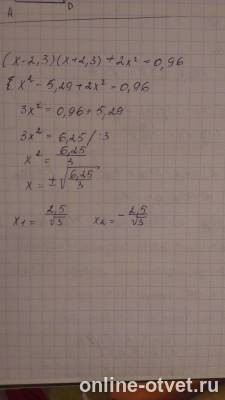 A D
(x-2,3)(x+2,3)+2x²=0,96
x²-5,29+2x²=0,96
3x²=0,96+5,29
3x²=6,25/:3
x²=6,25/3
x=±√6,25/3
x₁=2,5/√3 x₂=-2,5/√3
online-otvet.ru